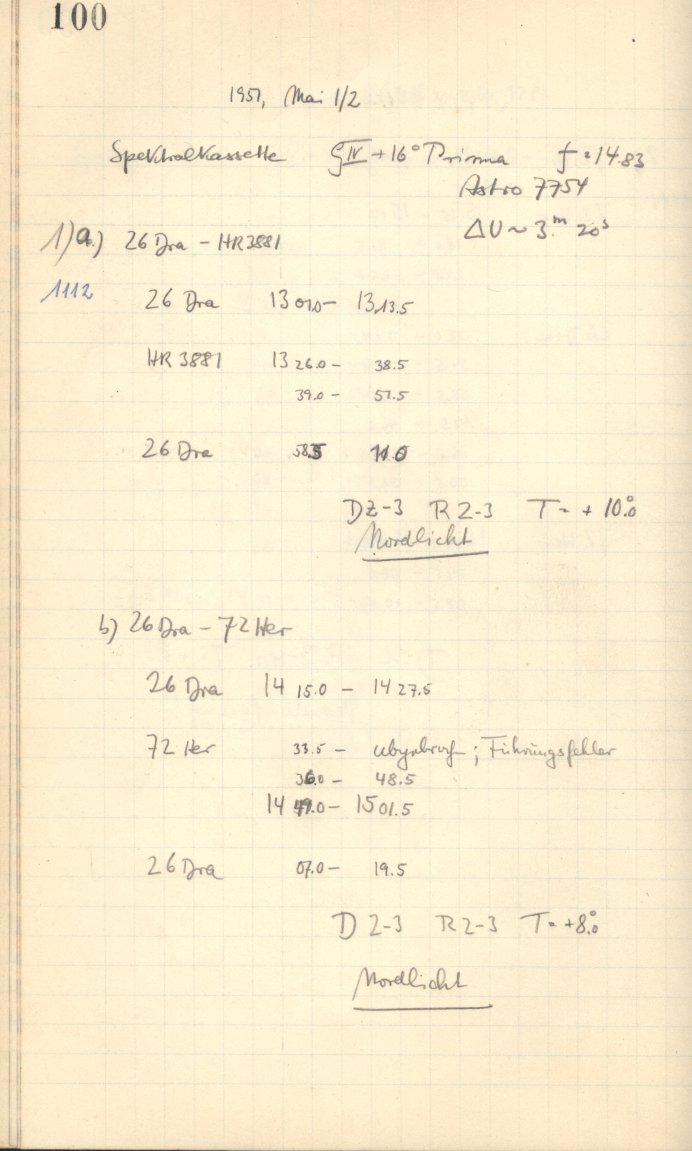 100
1951, Mai 1/2
Spektralkassette GIV + 16° Prisma f = 14.83
Astro 7754
ΔU ~ 3.ᵐ 20ˢ
1) a.) 26 Dra - HR 3881
1112
26 Dra 13 01.0 - 13 13.5
HR 3881 13 26.0 - 38.5
39.0 - 51.5
26 Dra 58.5 11.0
D 2-3 R 2-3 T = + 10.°0
Nordlicht
b) 26 Dra - 72 Her
26 Dra 14 15.0 - 14 27.5
72 Her 33.5 - abgebroch ; Führungsfehler
36.0 - 48.5
14 49.0 - 15 01.5
26 Dra 07.0 - 19.5
D 2-3 R 2-3 T = +8.°0
Nordlicht